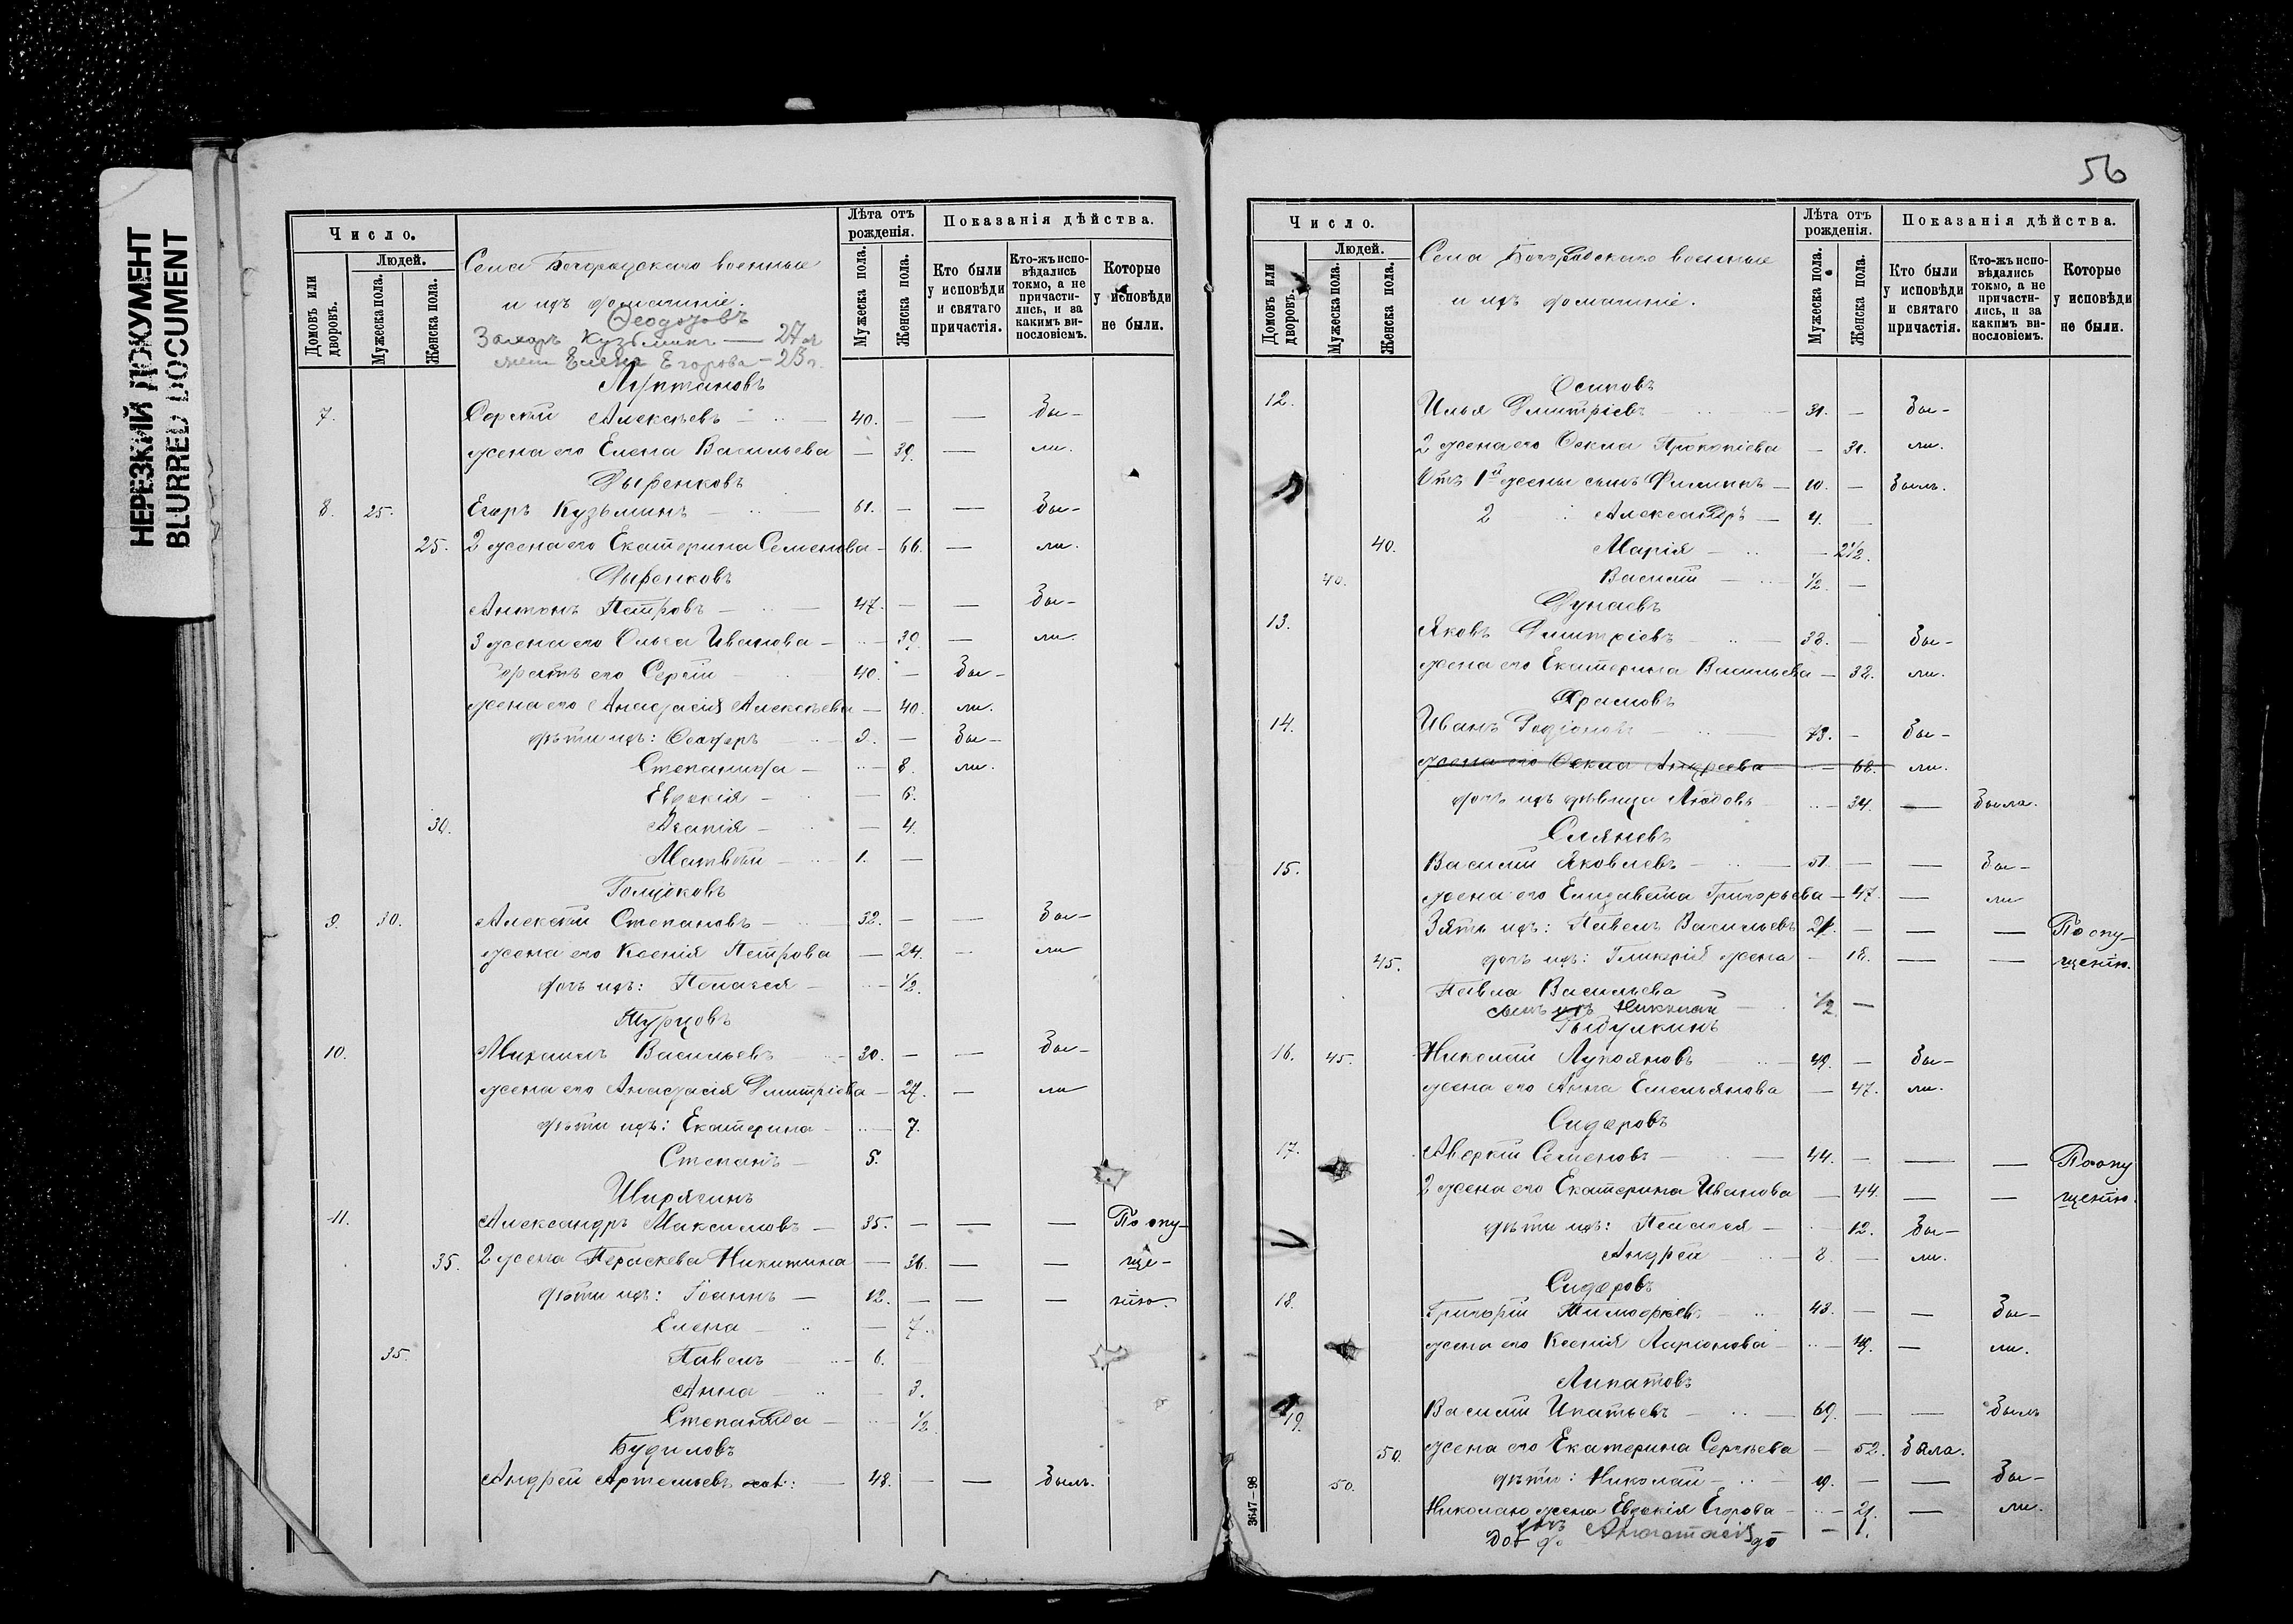 НЕРЕЗКИЙ ДОКУМЕНТ
BLURRED DOCUMENT
Число.
Лѣта отъ рожденія.
Показанія дѣйства.
Домовъ или дворовъ.
Людей.
Мужеска пола.
Женска пола.
Мужеска пола.
Женска пола.
Кто были у исповѣди и святаго причастія.
Кто-жъ исповѣдались токмо, а не причастились, и за какимъ винословіемъ.
Которые у исповѣди не были.
Села Богородскаго военные
и ихъ домашніе.
Феодоровъ
Захаръ Кузьминъ — 27
жена Елена Егорова — 23 г.
7. Сергѣй Алексѣевъ — 40. — — Бы-
жена его Елена Васильева — 39. — ли.
Дыренковъ
8. 25. Егоръ Кузьминъ — 61. — — Бы-
25. 2 жена его Екатерина Семенова — 66. — ли.
Дыренковъ
Антонъ Петровъ — 47. — — Бы-
3 жена его Ольга Иванова — 39. — ли.
братъ его Сергѣй — 40. — Бы-
жена его Анастасія Алексѣева — 40. ли.
дѣти ихъ: Федоръ — 9. — Бы-
Степанида — 8. ли.
Евдокія — 6.
30. Агапія — 4.
Матвѣй — 1. —
Голщековъ
9. 30. Алексѣй Степановъ — 32. — — Бы-
жена его Ксенія Петрова — 24. — ли
дочь ихъ: Пелагея — 1/2.
Турцовъ
10. Михаилъ Васильевъ — 30. — — Бы-
жена его Анастасія Дмитріева — 27. — ли
дѣти ихъ: Екатерина — 7.
Степанъ — 5.
Ширягинъ
11. Александръ Максимовъ — 35. — — — По опу-
35. 2 жена Параскева Никитина — 36. — — ще-
дѣти ихъ: Іоаннъ — 12. — — — нію.
Елена — 7.
35. Павелъ — 6.
Анна — 3.
Степанида — 1/2
Будиловъ
Андрей Артемьевъ — 48. — — Былъ.
56
Число.
Лѣта отъ рожденія.
Показанія дѣйства.
Домовъ или дворовъ.
Людей.
Мужеска пола.
Женска пола.
Мужеска пола.
Женска пола.
Кто были у исповѣди и святаго причастія.
Кто-жъ исповѣдались токмо, а не причастились, и за какимъ винословіемъ.
Которые у исповѣди не были.
Села Богородскаго военные
и ихъ домашніе.
Осиповъ
12. Илья Дмитріевъ — 31. — Бы-
2 жена его Фекла Прокопіева — 31. ли.
Отъ 1й жены сынъ Филиппъ — 10. — Былъ.
2 Александръ — 4. —
40. Марія — 2 1/2.
40. Василій — 1/2. —
Дунаевъ
13. Яковъ Дмитріевъ — 32. — Бы-
жена его Екатерина Васильева — 32. ли.
Храмовъ
14. Иванъ Родіоновъ — 73. — Бы-
жена его Фекла Андреева — 68. ли.
дочь ихъ дѣвица Любовь — 34. — Была.
Сляневъ
15. Василій Яковлевъ — 51. — — Бы-
жена его Елизавета Григорьева — 47. — ли
Зять ихъ: Павелъ Васильевъ 21. — — — По опу-
45. дочь ихъ: Гликерія жена — 18. — — щенію.
Павла Васильева
сынъ ихъ Николай — 1/2 —
Гыбулкинъ
16. 45. Николай Лукояновъ — 49. — Бы-
жена его Анна Емельянова — 47. ли.
Сидоровъ
17. Аверкій Семеновъ — 44. — — — По опу
2 жена его Екатерина Иванова — 44. — — щенію.
дѣти ихъ: Пелагея — 12. Бы-
Андрей — 8. — ли.
Сидоровъ
18. Григорій Тимофеевъ — 48. — — Бы-
жена его Ксенія Ларіонова — 49. — ли.
Липатовъ
19. Василій Ипатьевъ — 69. — — Былъ
50. жена его Екатерина Сергѣева — 52. Была.
50. дѣти: Николай — 19. — — Бы-
Николаю жена Евдокія Егорова — 21. — ли.
дочь Анастасія — 1.
3647—98